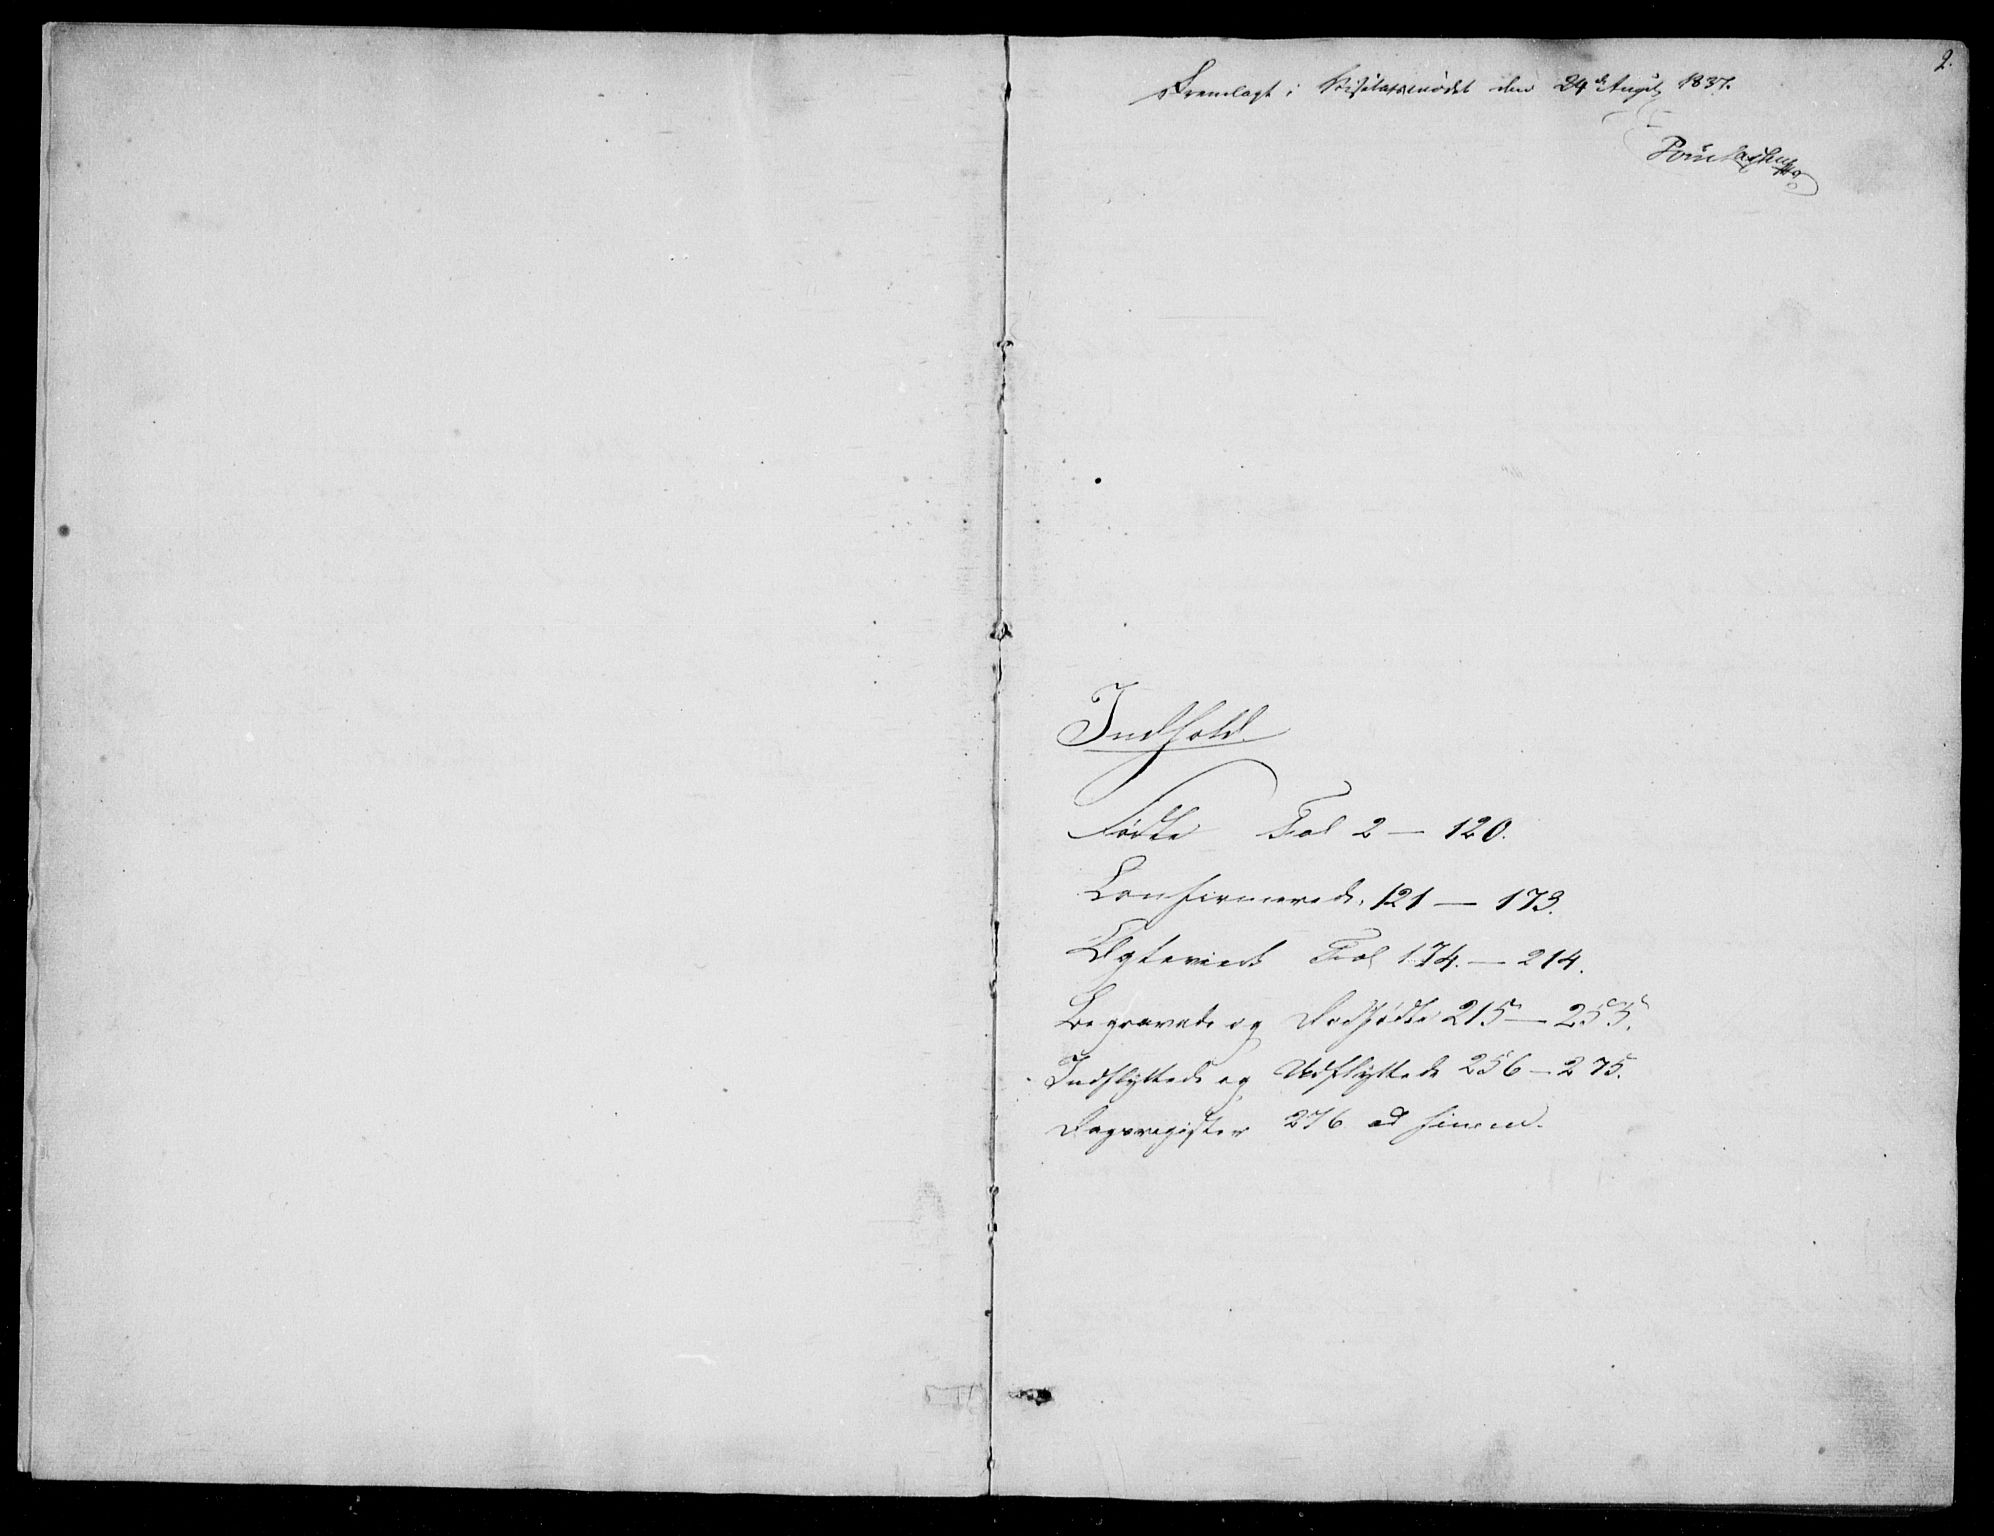 2.
Fremlagt i Visitatsmødet den 24de August 1837.
Indhold.
Fødte Fol 2 — 120.
Confirmerede, 121 — 173.
Ægteviede Fol 174. — 214.
Begravede og Dødfødte 215 — 255.
Indflyttede og Udflyttede 256 — 275.
Dagsregister 276 ad finem.